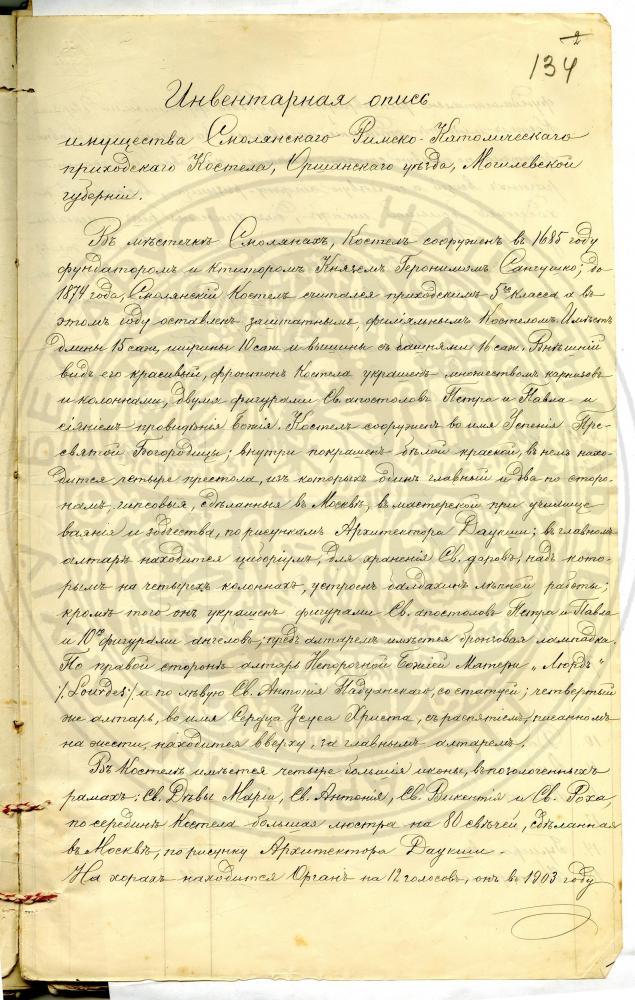 2
134
Инвентарная опись
имущества Смолянскаго Римско-Католическаго
приходскаго Костела, Оршанскаго уѣзда, Могилевской
губерніи.
Въ мѣстечкѣ Смолянахъ, Костелъ сооруженъ въ 1685 году
фундаторомъ и ктиторомъ Княземъ Геронимомъ Сангушко; до
1874 года, Смолянскій Костелъ считался приходскимъ 5го класса а въ
этомъ году оставленъ заштатнымъ, филіяльнымъ Костеломъ. Имѣетъ
длины 15 саж, ширины 10 саж и вышины съ башнями 16 саж. Внѣшній
видъ его красивый, фронтонъ Костела украшенъ множествомъ карнизовъ
и колонками, двумя фигурами Св. апостоловъ Петра и Павла и
сіяніемъ провидѣнія Божія. Костелъ сооруженъ во имя Успенія Пре-
святой Богородицы; внутри покрашенъ бѣлой краской, въ немъ нахо-
дится четыре престола, изъ которыхъ одинъ главный и два по сторо-
намъ, гипсовыя, сдѣланныя въ Москвѣ, въ мастерской при училище
ваянія и зодчества, по рисункамъ Архитектора Даукши; въ главномъ
алтарѣ находится циборіумъ, для храненія Св. даровъ, надъ кото-
рымъ на четырехъ колоннахъ, устроенъ балдахинъ лѣпной работы;
кромѣ того онъ украшенъ фигурами Св. апостоловъ Петра и Павла
и 10ю фигурами ангеловъ; предъ алтаремъ имѣется бронзовая лампадка.
По правой сторонѣ алтарь Непорочной Божіей Матери „Люрдъ"
/Lourdes/ а по лѣвую Св. Антонія Падуанскаго, со статуей; четвертый
же алтарь, во имя Сердца Ісуса Христа, съ распятіемъ, писанномъ
на жести, находится вверху, за главнымъ алтаремъ.
Въ Костелѣ имѣется четыре большія иконы, въ позолоченныхъ
рамахъ: Св. Дѣвы Маріи, Св. Антонія, Св. Викентія и Св. Роха,
по серединѣ Костела большая люстра на 80 свѣчей, сдѣланная
въ Москвѣ, по рисунку Архитектора Даукши.
На хорахъ находится Органъ на 12 голосовъ, онъ въ 1903 году